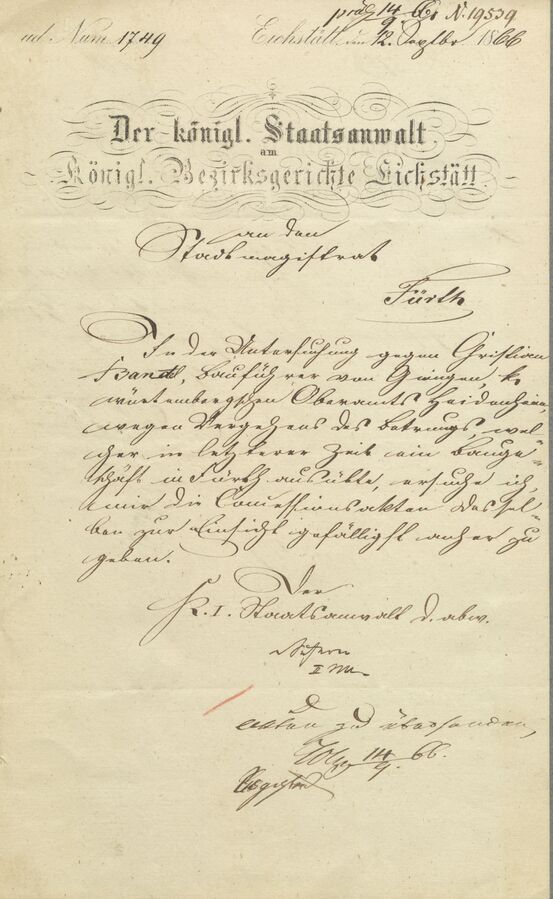 präs. 14/9. 66 N. 19539
ad Num 1749 Eichstätt, den 12. Septbr. 1866
Der königl. Staatsanwalt
am
Königl. Bezirksgerichte Eichstätt
an den
Stadtmagistrat
Fürth
In der Untersuchung gegen Christian
Bandl, Bauführer von Giengen, k.
württembergischen Oberamts Heidenheim,
wegen Vergehens des Betrugs, wel-
cher in letzterer Zeit ein Bauge-
schäft in Fürth ausübte, ersuche ich
mir die Concessionsakten dessel-
ben zur Einsicht gefälligst anher zu
geben.
Der
K. I. Staatsanwalt d. abw.
II
Akten zu übersenden,
14/9. 66.